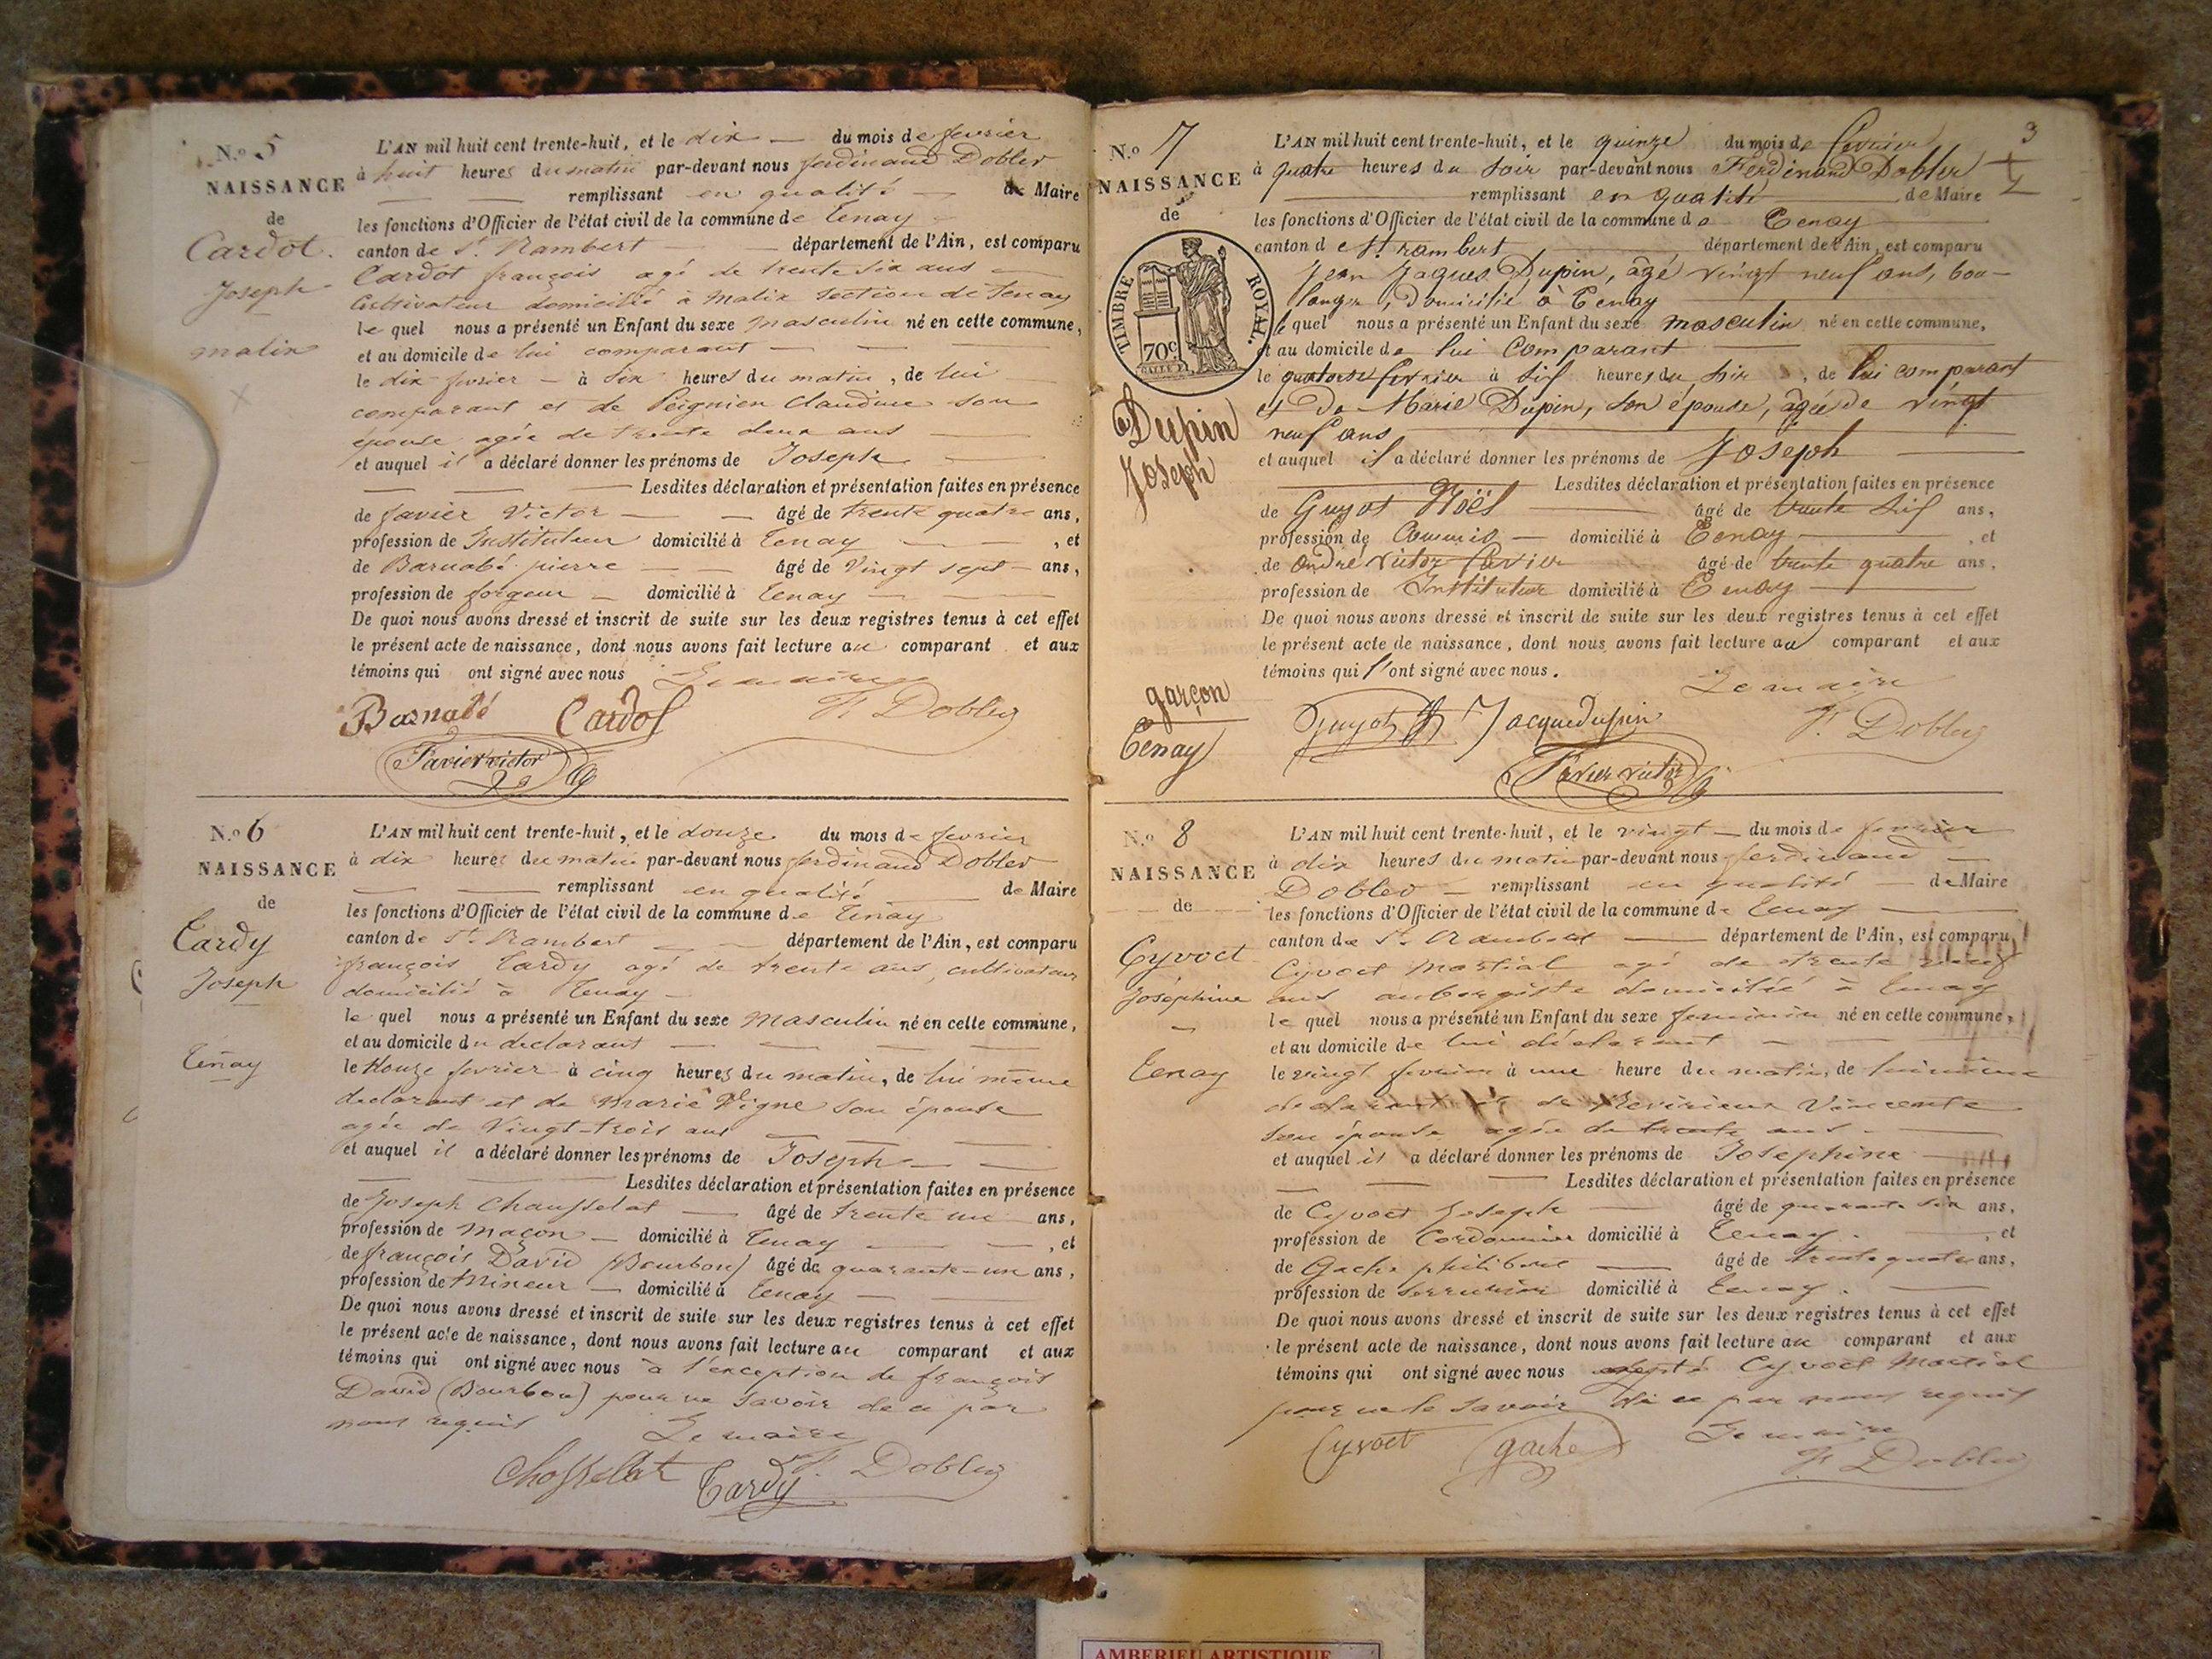 N.o 5
NAISSANCE
de
Cardot.
Joseph
malix
L'AN mil huit cent trente-huit, et le dix du mois de fevrier
à huit heures du matin par-devant nous ferdinand Dobler
remplissant en qualité de Maire
les fonctions d'Officier de l'état civil de la commune de Tenay
canton de St. Rambert département de l'Ain, est comparu
Cardot françois agé de trente six ans
Cultivateur domicilié à Malix section de Tenay
le quel nous a présenté un Enfant du sexe masculin né en cette commune,
et au domicile de lui comparant
le dix fevrier à six heures du matin, de lui
comparant et de Peignien Claudine son
épouse agée de trente deux ans
et auquel il a déclaré donner les prénoms de Joseph
Lesdites déclaration et présentation faites en présence
de favier Victor âgé de trente quatre ans,
profession de Instituteur domicilié à Tenay, et
de Barnabé pierre âgé de Vingt sept ans,
profession de forgeur domicilié à Tenay
De quoi nous avons dressé et inscrit de suite sur les deux registres tenus à cet effet
le présent acte de naissance, dont nous avons fait lecture au comparant et aux
témoins qui ont signé avec nous Le maire
Barnabé Cardot F. Dobler
Favier victor
N.o 6
NAISSANCE
de
Tardy
Joseph
Tenay
L'AN mil huit cent trente-huit, et le douze du mois de fevrier
à dix heures du matin par-devant nous ferdinand Dobler
remplissant en qualité de Maire
les fonctions d'Officier de l'état civil de la commune de Tenay
canton de St. Rambert département de l'Ain, est comparu
françois Tardy agé de trente ans, cultivateur
domicilié à Tenay
le quel nous a présenté un Enfant du sexe masculin né en cette commune,
et au domicile du declarant
le douze fevrier à cinq heures du matin, de lui même
declarant et de marie Vigne son épouse
agée de Vingt-trois ans
et auquel il a déclaré donner les prénoms de Joseph
Lesdites déclaration et présentation faites en présence
de Joseph Chausselat âgé de trente un ans,
profession de maçon domicilié à Tenay, et
de françois David (Bourbon) âgé de quarante-un ans,
profession de Mineur domicilié à Tenay
De quoi nous avons dressé et inscrit de suite sur les deux registres tenus à cet effet
le présent acte de naissance, dont nous avons fait lecture au comparant et aux
témoins qui ont signé avec nous à l'exception de françois
David (Bourbon) pour ne savoir de ce par
nous requis Le maire
Chosselat Tardy F. Dobler
3
N.o 7
NAISSANCE
de
TIMBRE ROYAL.
70c
Dupin
Joseph
garçon
Tenay
L'AN mil huit cent trente-huit, et le quinze du mois de fevrier
à quatre heures du soir par-devant nous Ferdinand Dobler
remplissant en qualité de Maire
les fonctions d'Officier de l'état civil de la commune de Tenay
canton de St. rambert département de l'Ain, est comparu
Jean Jaques Dupin, âgé vingt neuf ans, bou-
langer, domicilié à Tenay
le quel nous a présenté un Enfant du sexe masculin né en cette commune,
et au domicile de lui Comparant
le quatorse fevrier à six heures du soir, de lui comparant
et de Marie Dupin, son épouse, âgée de vingt
neuf ans
et auquel il a déclaré donner les prénoms de Joseph
Lesdites déclaration et présentation faites en présence
de Guyot Noël âgé de trente six ans,
profession de Commis domicilié à Tenay, et
de andré victor favier âgé de trente quatre ans,
profession de Instituteur domicilié à Tenay
De quoi nous avons dressé et inscrit de suite sur les deux registres tenus à cet effet
le présent acte de naissance, dont nous avons fait lecture au comparant et aux
témoins qui l'ont signé avec nous.
Le maire
Guyot Jacque dupin F. Dobler
Favier victor
N.o 8
NAISSANCE
de
Cyvoct
Joséphine
Tenay
L'AN mil huit cent trente-huit, et le vingt du mois de fevrier
à dix heures du matin par-devant nous ferdinand
Dobler remplissant en qualité de Maire
les fonctions d'Officier de l'état civil de la commune de Tenay
canton de St. Rambert département de l'Ain, est comparu
Cyvoct Martial agé de trente neuf
ans aubergiste domicilié à Tenay
le quel nous a présenté un Enfant du sexe feminin né en cette commune,
et au domicile de lui déclarant
le vingt fevrier à une heure du matin, de lui même
declarant et de Vincente
son épouse agée de trente ans
et auquel il a déclaré donner les prénoms de Joséphine
Lesdites déclaration et présentation faites en présence
de Cyvoct Joseph âgé de quarante six ans,
profession de Cordonnier domicilié à Tenay, et
de Gache philibert âgé de trente quatre ans,
profession de Serrurier domicilié à Tenay.
De quoi nous avons dressé et inscrit de suite sur les deux registres tenus à cet effet
le présent acte de naissance, dont nous avons fait lecture au comparant et aux
témoins qui ont signé avec nous excepté Cyvoct Martial
pour ne le savoir de ce par nous requis
Le maire
Cyvoct gache F. Dobler
AMBERIEU ARTISTIQUE